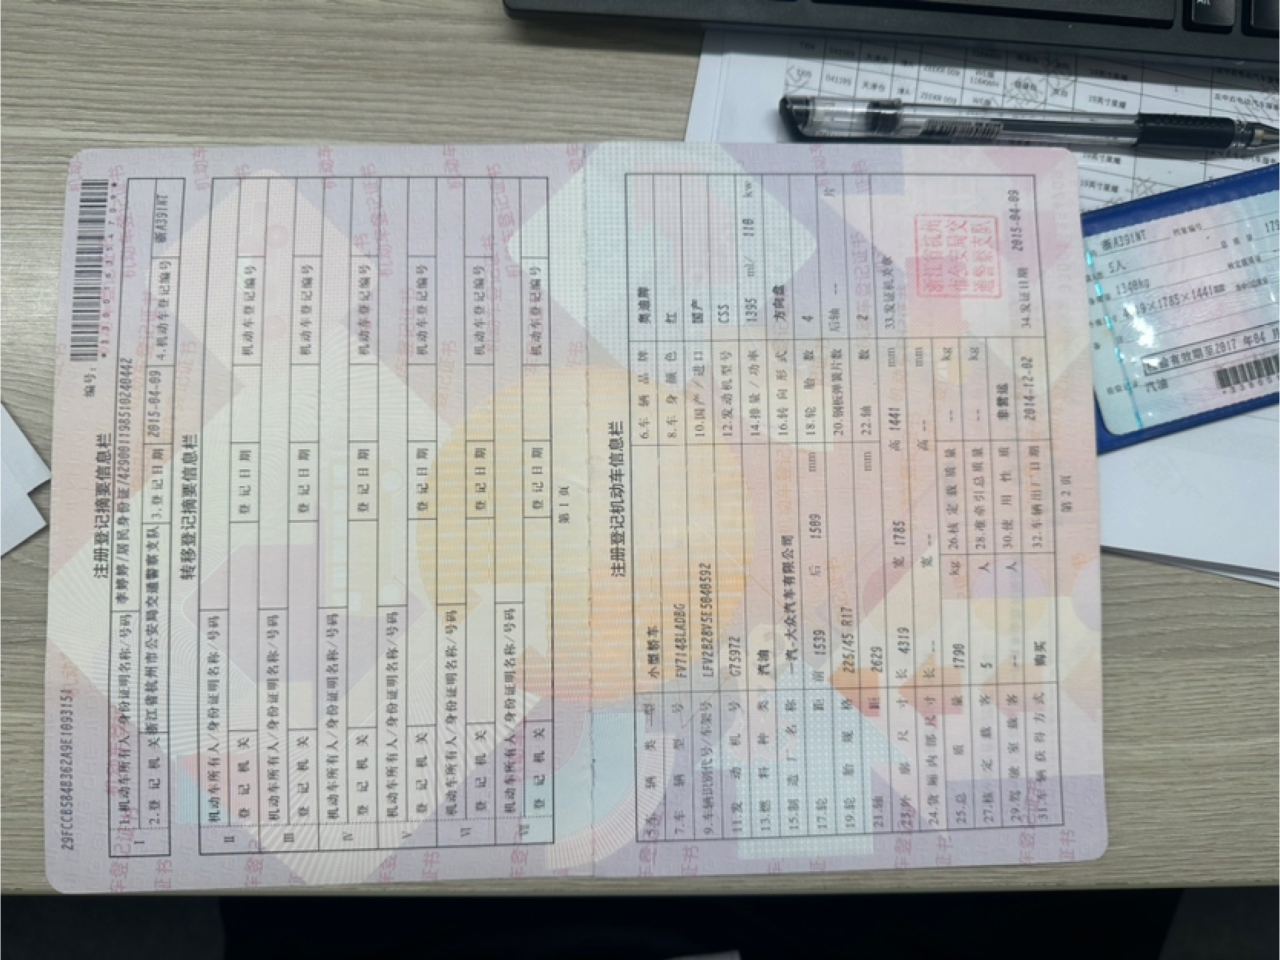 29FCCB5848362A9E1093151
编号:
注册登记摘要信息栏
I 1.机动车所有人/身份证明名称/号码 李婷婷/居民身份证/429001198510240442
2.登记机关 浙江省杭州市公安局交通警察支队 3.登记日期 2015-04-09 4.机动车登记编号 浙A391NT
转移登记摘要信息栏
II 机动车所有人/身份证明名称/号码
登记机关 登记日期 机动车登记编号
III 机动车所有人/身份证明名称/号码
登记机关 登记日期 机动车登记编号
IV 机动车所有人/身份证明名称/号码
登记机关 登记日期 机动车登记编号
V 机动车所有人/身份证明名称/号码
登记机关 登记日期 机动车登记编号
VI 机动车所有人/身份证明名称/号码
登记机关 登记日期 机动车登记编号
VII 机动车所有人/身份证明名称/号码
登记机关 登记日期 机动车登记编号
第1页
注册登记机动车信息栏
5.车辆类型 小型轿车 6.车辆品牌 奥迪牌
7.车辆型号 FV7148LADBG 8.车身颜色 红
9.车辆识别代号/车架号 LFV2B28V5E5040592 10.国产/进口 国产
11.发动机号 G75972 12.发动机型号 CSS
13.燃料种类 汽油 14.排量/功率 1395 ml/ 110 kw
15.制造厂名称 一汽-大众汽车有限公司 16.转向形式 方向盘
17.轮距 前 1539 后 1509 mm 18.轮胎数 4
19.轮胎规格 225/45 R17 20.钢板弹簧片数 后轴 -- 片
21.轴距 2629 mm 22.轴数 2
23.外廓尺寸 长 4319 宽 1785 高 1441 mm 33.发证机关章
24.货厢内部尺寸 长 -- 宽 -- 高 -- mm
25.总质量 1790 kg 26.核定载质量 -- kg
27.核定载客 5 人 28.准牵引总质量 -- kg
29.驾驶室载客 -- 人 30.使用性质 非营运
31.车辆获得方式 购买 32.车辆出厂日期 2014-12-02 34.发证日期 2015-04-09
第2页
浙A391NT
档案编号
5人
1340kg
1785×1441
有效期至2017年04月
汽油